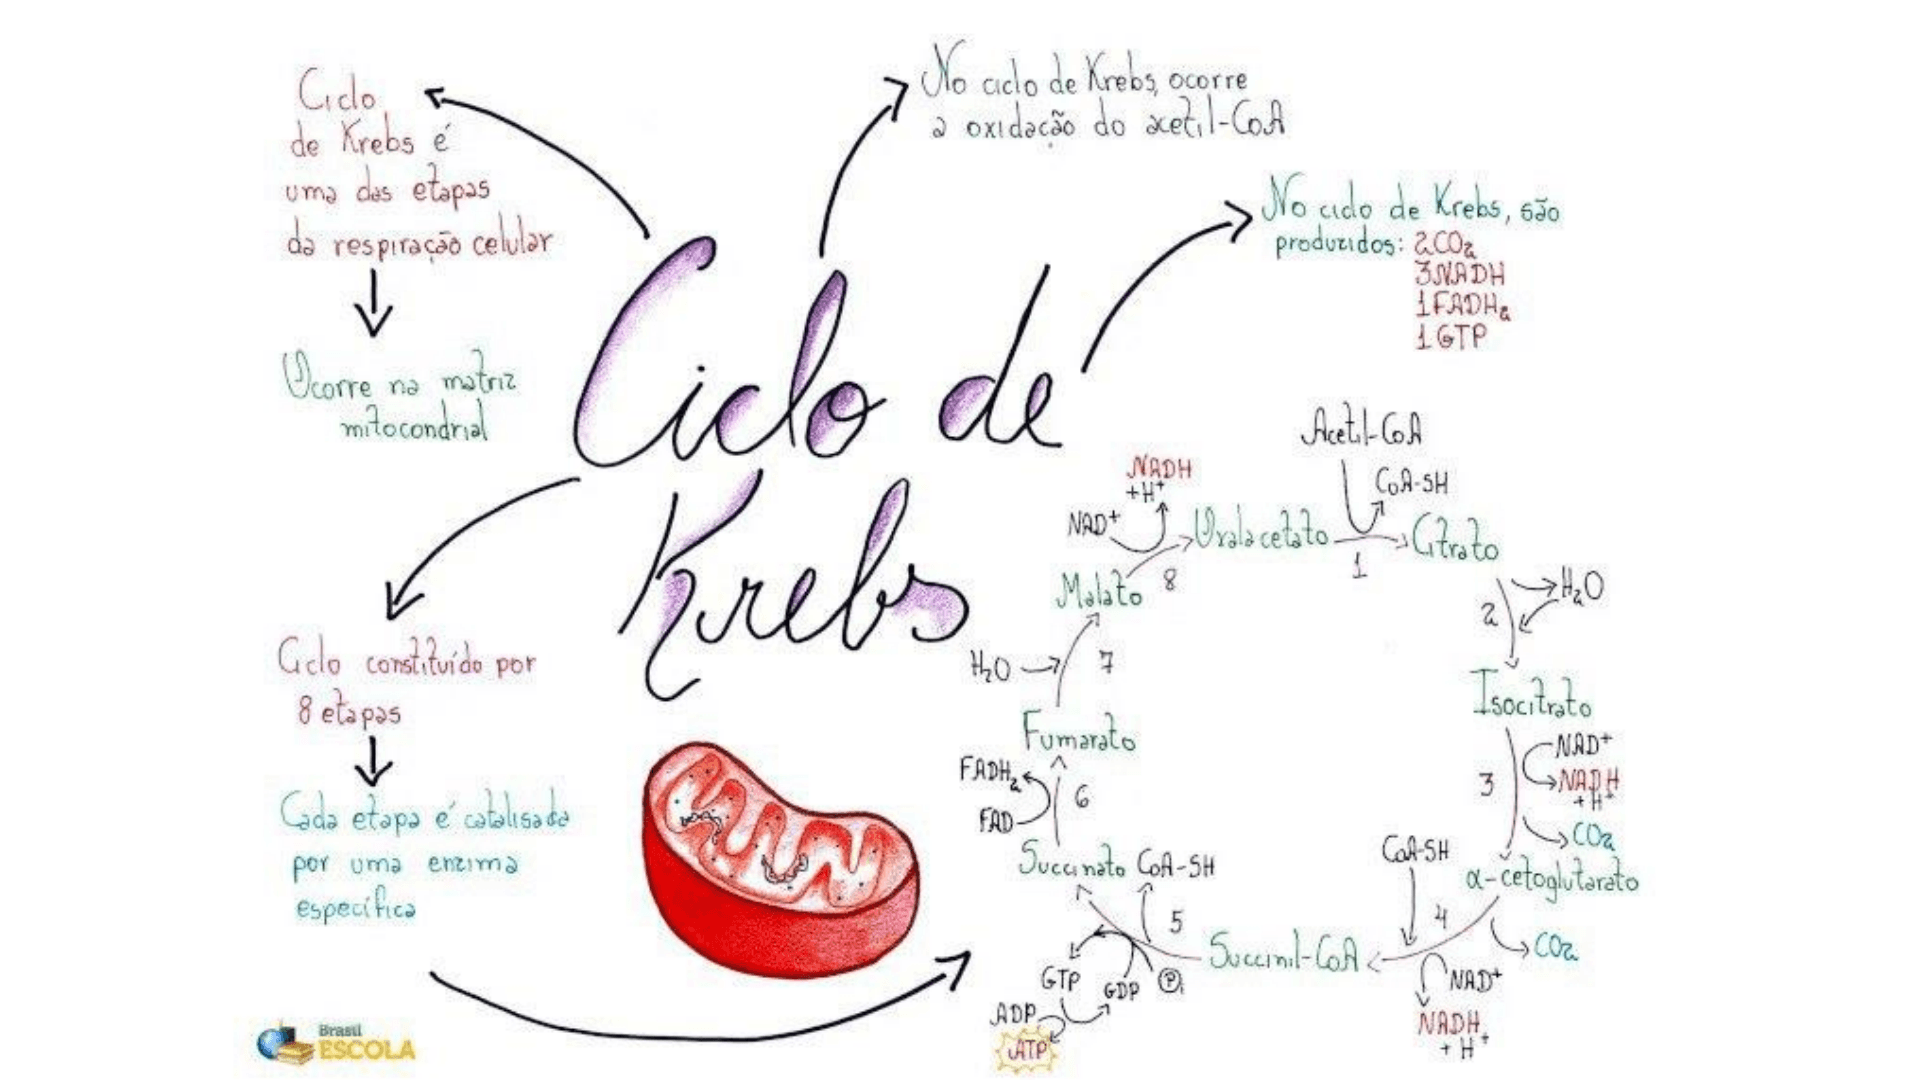 Ciclo
de Krebs é
uma das etapas
da respiração celular
Ocorre na matriz
mitocondrial
No ciclo de Krebs, ocorre
a oxidação do acetil-CoA
No ciclo de Krebs, são
produzidos: 2CO₂
3NADH
1FADH₂
1GTP
Ciclo de
Krebs
Ciclo constituído por
8 etapas
Cada etapa é catalisada
por uma enzima
específica
Acetil-CoA
CoA-SH
Oxalacetato
1
Citrato
H₂O
2
Isocitrato
NAD⁺
3
NADH
+ H⁺
CO₂
α-cetoglutarato
CoA-SH
4
CO₂
NAD⁺
NADH
+ H⁺
Succinil-CoA
5
CoA-SH
Pi
GDP
GTP
ADP
ATP
Succinato
6
FAD
FADH₂
Fumarato
H₂O
7
Malato
8
NAD⁺
NADH
+H⁺
Brasil
ESCOLA